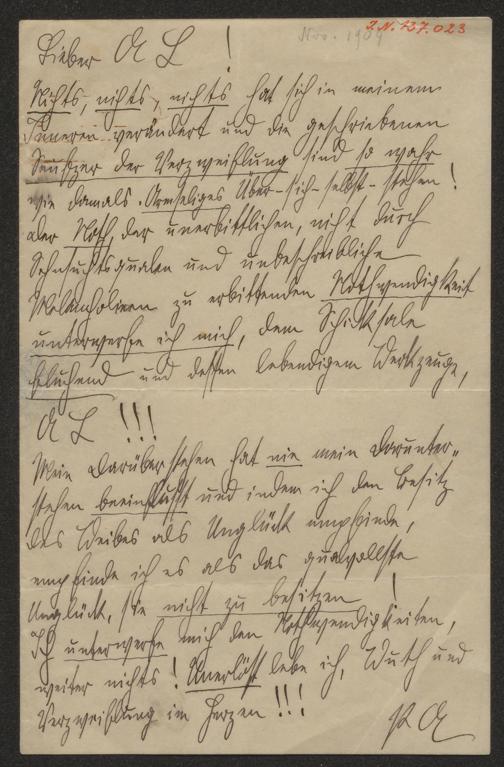 J.N. 137.023
Nov. 1904
Lieber A L !
Nichts, nichts, nichts hat sich in meinem
Inneren verändert und die geschriebenen
Seufzer der Verzweiflung sind so wahr
wie damals. Armseliges Über-sich-selbst-stehen!
Der Noth, der unerbittlichen, nicht durch
Sehnsuchtsqualen und unbeschreibliche
Melancholieen zu erbittenden Nothwendigkeit
unterwerfe ich mich, dem Schicksale
fluchend und dessen lebendigem Werkzeuge,
A L !!!
Mein Darüberstehen hat nie mein Darunter-
stehen beeinflusst und indem ich den Besitz
des Weibes als Unglück empfinde,
empfinde ich es als das qualvollste
Unglück, sie nicht zu besitzen !
Ich unterwerfe mich den Nothwendigkeiten,
weiter nichts ! Unerlöst lebe ich, Wuth und
Verzweiflung im Herzen !!!
P A